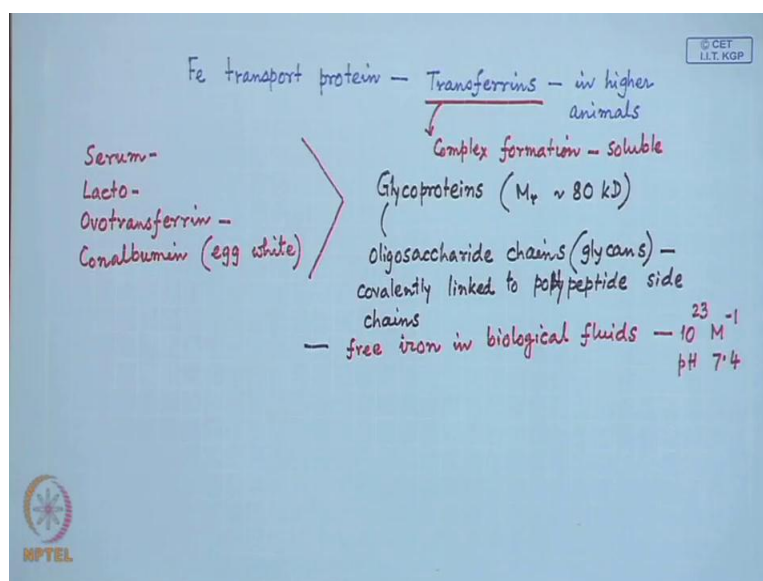 © CET
I.I.T. KGP
Fe transport protein – Transferrins – in higher
animals
Complex formation – soluble
Serum-
Lacto-
Ovotransferrin –
Conalbumin (egg white)
Glycoproteins (Mr ~ 80 kD)
oligosaccharide chains (glycans) –
covalently linked to polypeptide side
chains
– free iron in biological fluids – 10²³ M⁻¹
pH 7.4
NPTEL